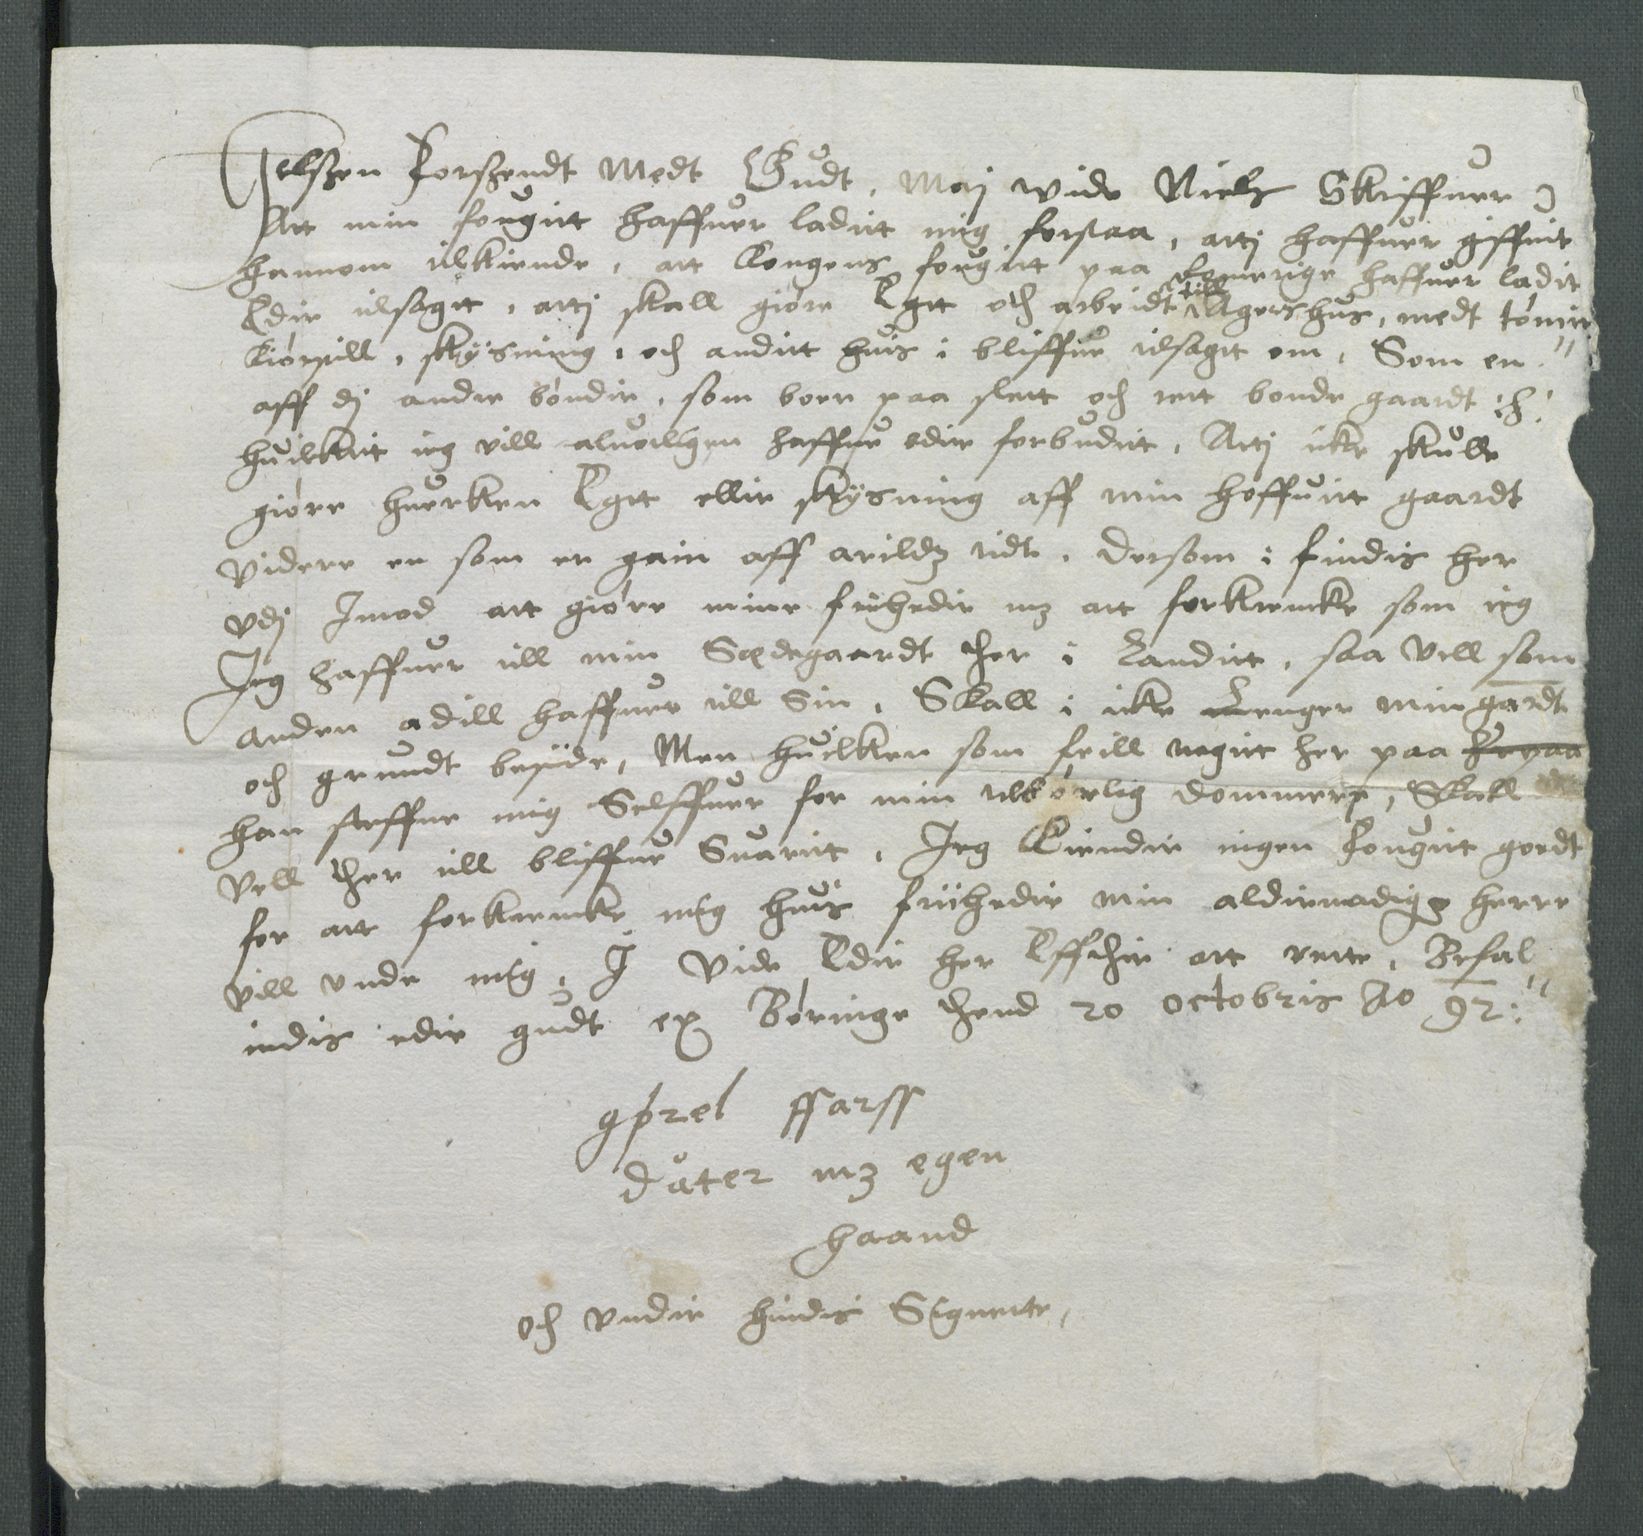 Helszen Forszendt Medt Gudt, Maj wide Niels Skriffuer
Att min fougitt haffuer ladit mig forstaa, atj haffuer giffuit
hannom tilkiende, att Kongens fougitt paa Romerige haffuer ladit
Edir tilsagt, atj skall giøre Egt och arbeidt till Agershus, medt tømir
kiørsill, skydsning, och andit huis i bliffue tilsagt om, Som en
aff dj andre bøndir, som boer paa slett och rett bonde gaardt
huilkit ieg vill aluorligen haffue edir forbudit, Atj icke skulle
giøre huerken Egt ellir skydsning aff min hoffuit gaardt
videre en som er gain aff arildz tidt, dersom i findis her
vdj Imod att giøre mine friihedir mz att forkrencke som ieg
Jeg haffuer till min Sædegaardt ther i Landitt, saa vell som
anden adill haffuer till Sin, Skall i icke Lenger min gardt
och grundt besidde, Men huilken som feill nogit her paa
han steffne mig Selffuer for min tilbørlig dommere, Skall
vell ther till bliffue Suarit, Jeg Kiendir ingen Fougitt godt
for att forkrencke mig huis friihedir min aldirnadigste herre
vill vnde mig, I vide Edir her Effthir att rette, Befal
indis edir gudt ex Børinge thend 20 octobris Ao 92
gørel ffarss
dåter mz egen
haand
och vndir hindis Signette,